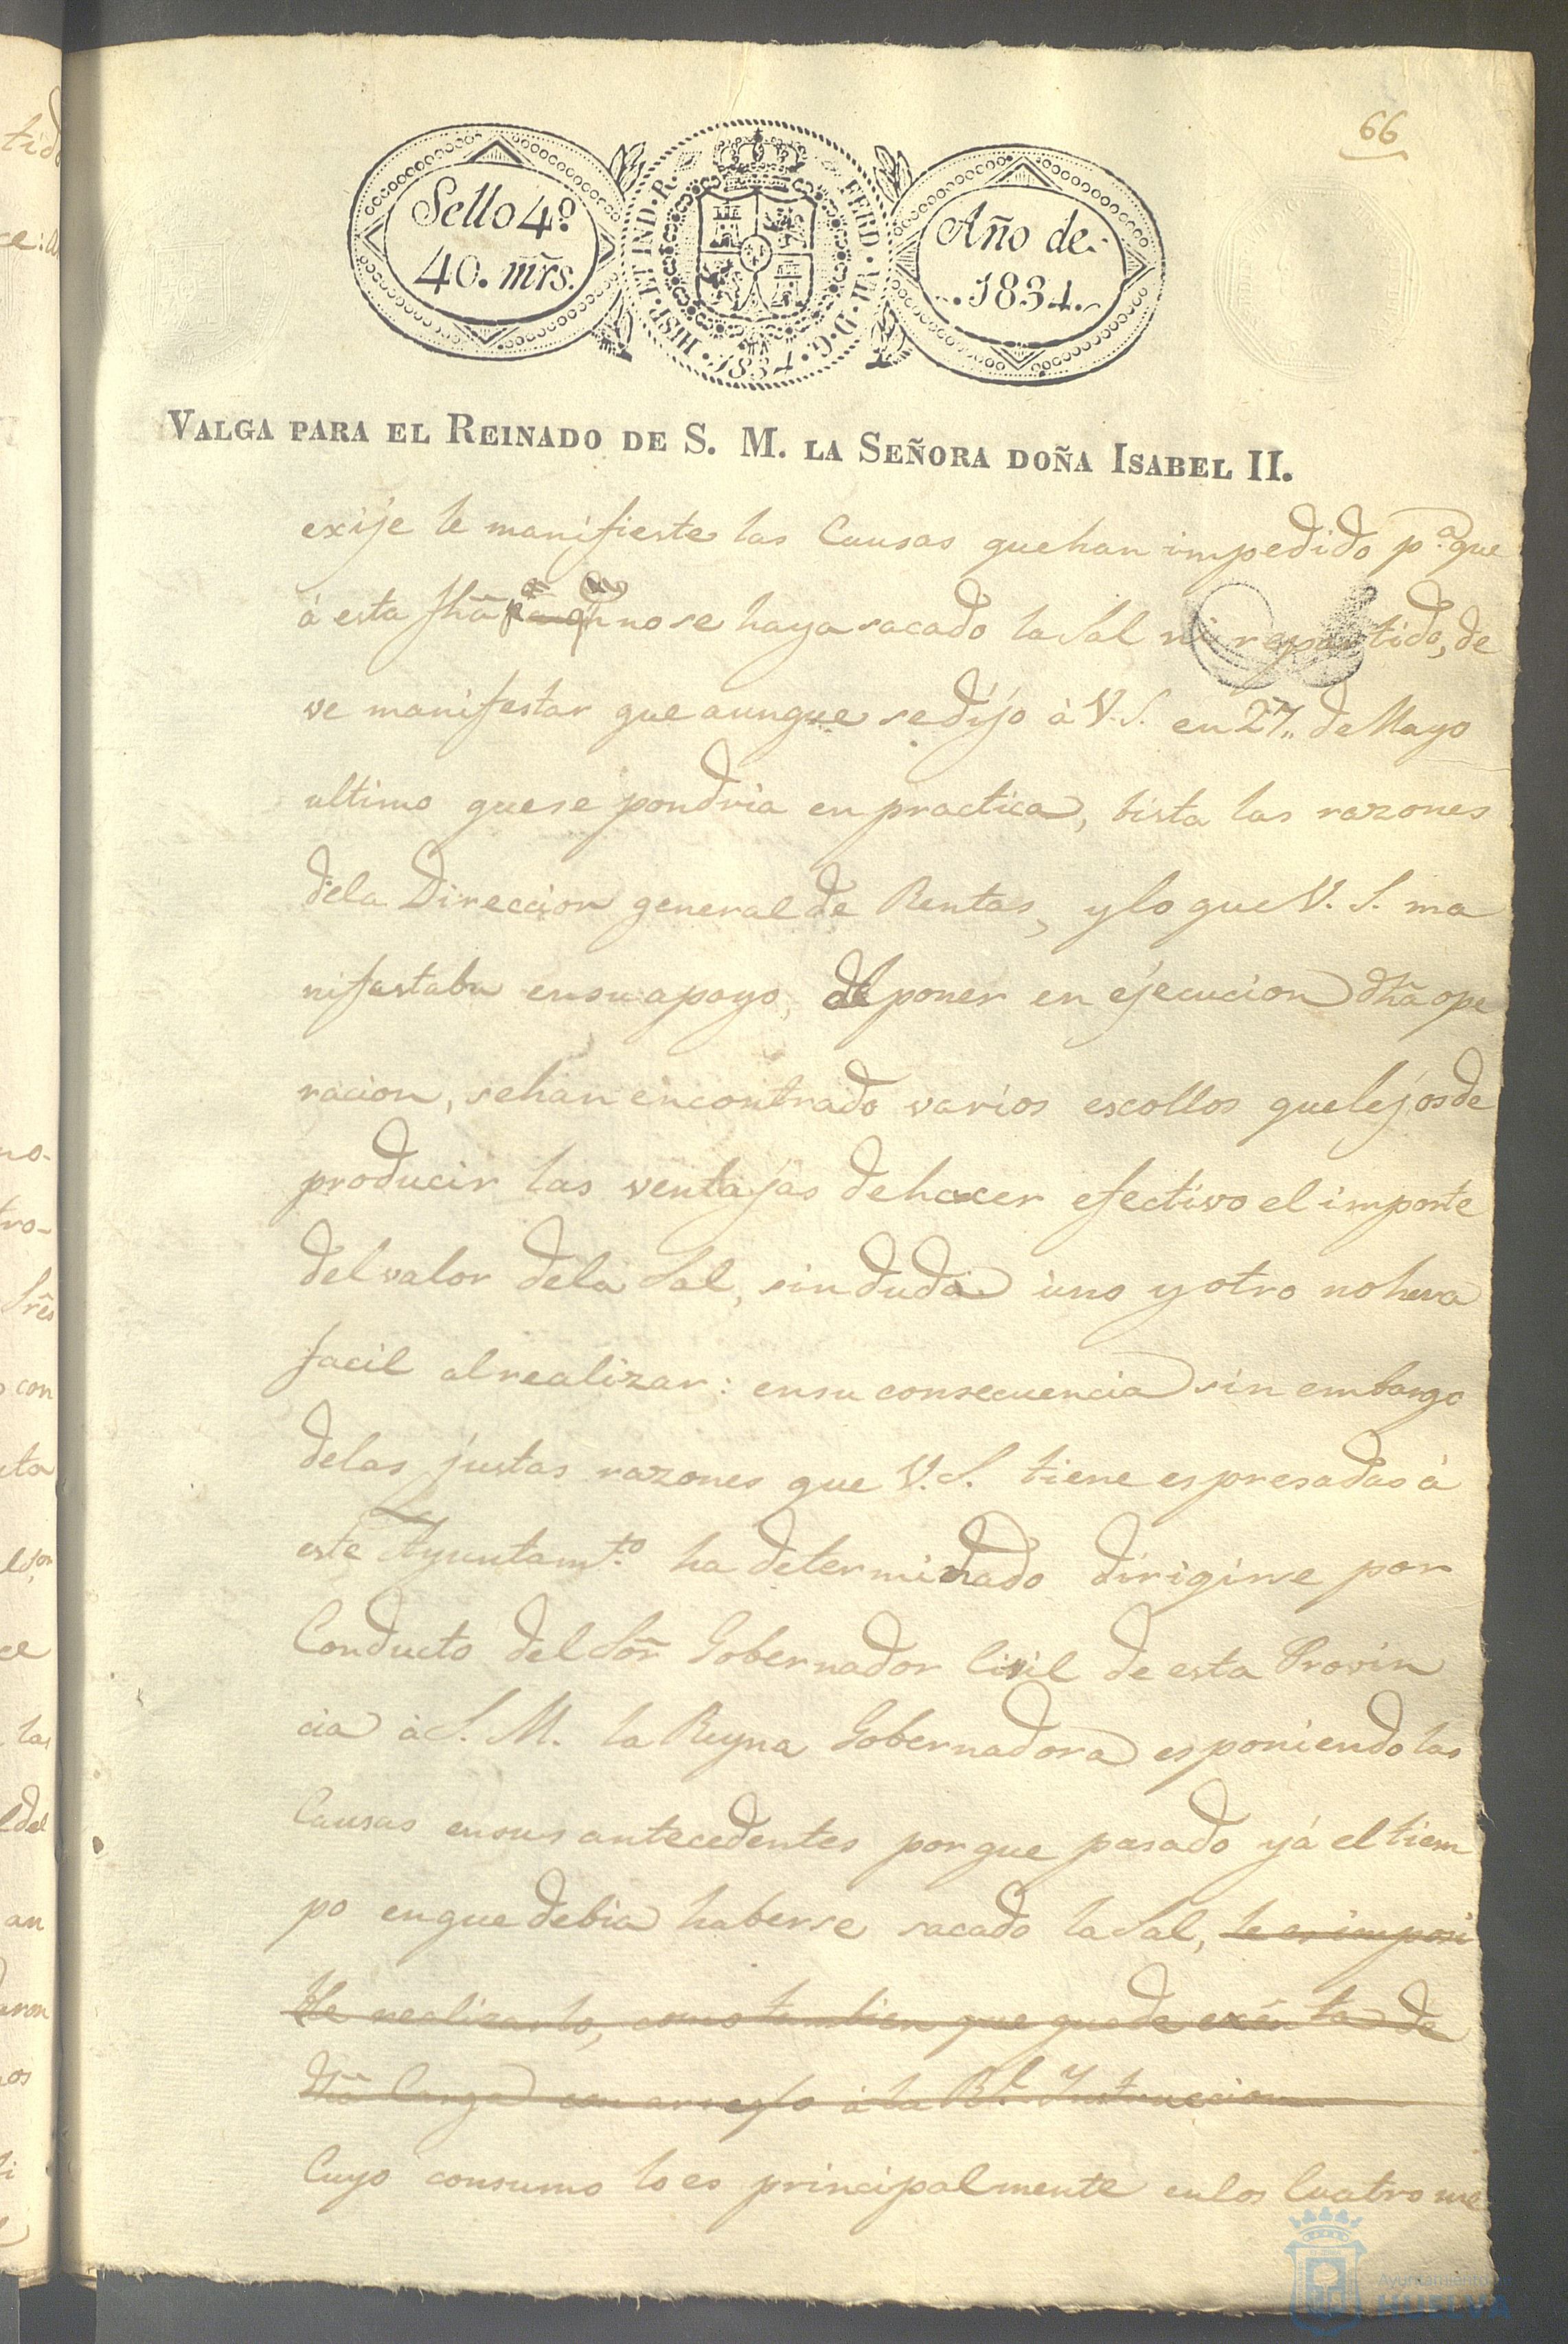 66
Sello 4º
40. mrs.
HISP. ET IND. R. FERD. VII. D. G. 1834.
Año de
1834.
VALGA PARA EL REINADO DE S. M. LA SEÑORA DOÑA ISABEL II.
exije le manifieste las Causas que han impedido p.ª que
á esta fhã no se haya sacado la Sal ni repartido, de
ve manifestar que aunque se dijo à V. S. en 27,, de Mayo
ultimo que se pondria en practica, bista las razones
dela Direccion general de Rentas, y lo que V. S. ma
nifestaba en su apoyo, al poner en ejecucion dhã ope
racion, sehan encontrado varios escollos que lejos de
producir las ventajas de hacer efectivo el importe
del valor dela Sal, sin duda uno y otro no hera
facil al realizar: en su consecuencia sin embargo
delas justas razones que V. S. tiene espresadas à
este Ayuntamt.º ha determinado dirigirse por
Conducto del Sõr Gobernador Civil de esta Provin
cia à S. M. la Reyna Gobernadora esponiendo las
Causas en sus antecedentes porque pasado yá el tiem
po en que debia haberse sacado la Sal, le es imposi
ble realizarlo, como tambien que quede exenta de
dhã Carga con arreglo à la Rl. Instruccion
Cuyo consumo lo es principalmente en los Cuatro me
Ayuntamiento de
HUELVA